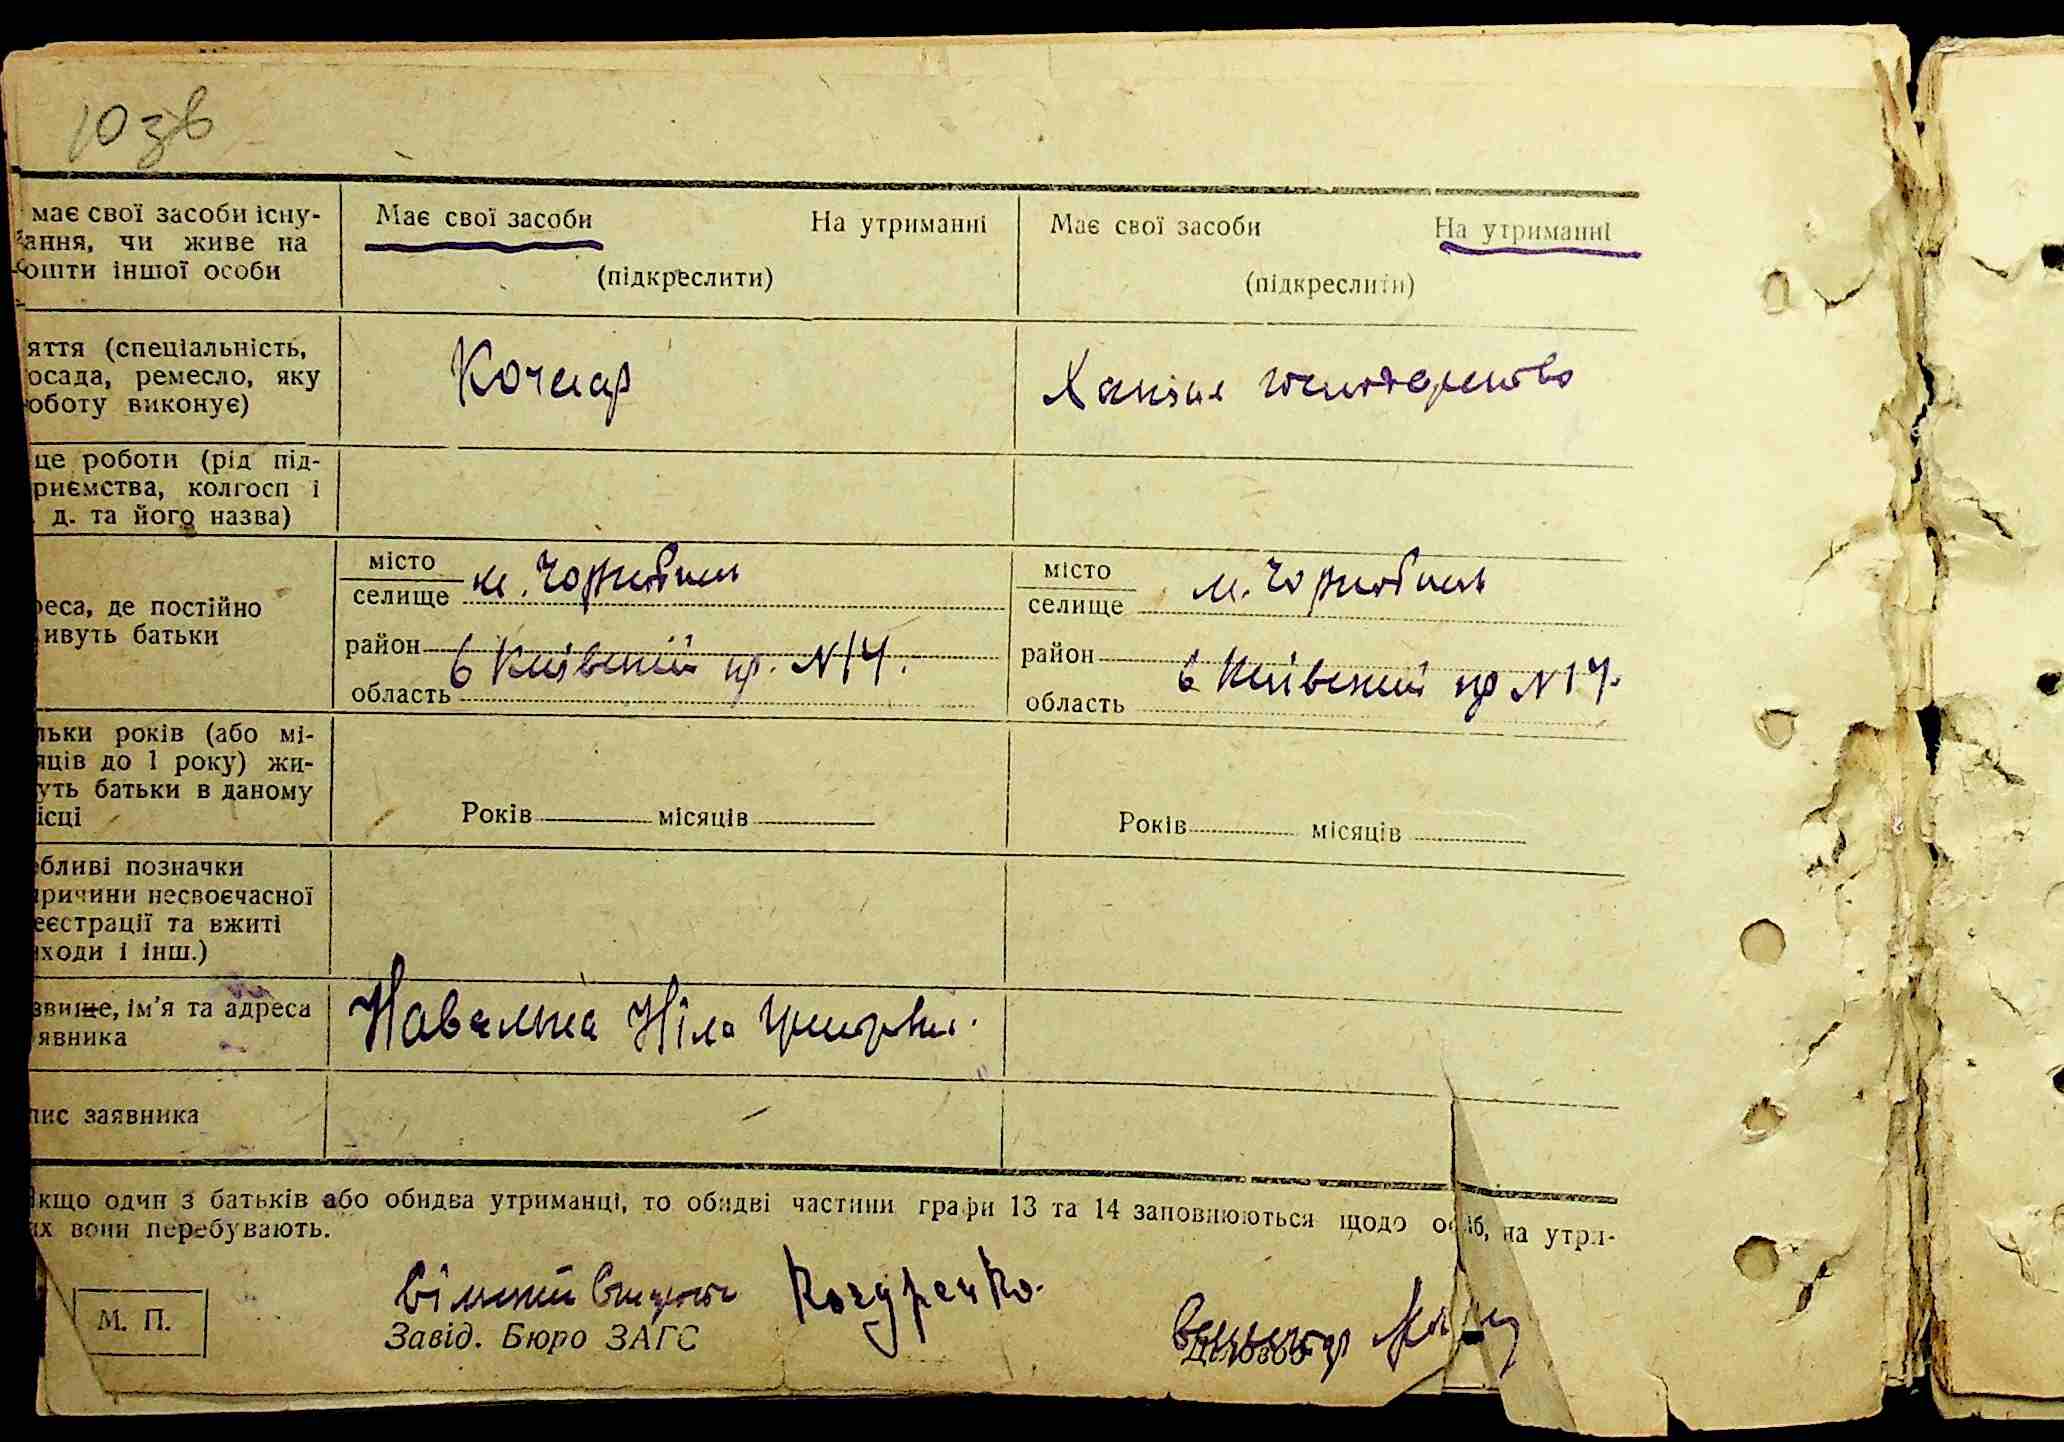 10 зв
має свої засоби існу-
ання, чи живе на
ошти іншої особи
Має свої засоби На утриманні
(підкреслити)
Має свої засоби На утриманні
(підкреслити)
яття (спеціальність,
осада, ремесло, яку
оботу виконує)
Кочегар
Хатнє господарство
це роботи (рід під-
риємства, колгосп і
д. та його назва)
реса, де постійно
ивуть батьки
місто
селище
м. Чорнобиль
район
область
Київський пр. N 14.
місто
селище
м. Чорнобиль
район
область
Київський пр N 14.
льки років (або мі-
яців до 1 року) жи-
уть батьки в даному
ісці
Років місяців
Років місяців
бливі позначки
причини несвоєчасної
еєстрації та вжиті
ходи і інш.)
звище, ім'я та адреса
явника
Навальна Ніла
пис заявника
Якщо один з батьків або обидва утриманці, то обидві частини графи 13 та 14 заповнюються щодо осіб, на утри-
их вони перебувають.
М. П.
Кочуренко.
Завід. Бюро ЗАГС
Діловод